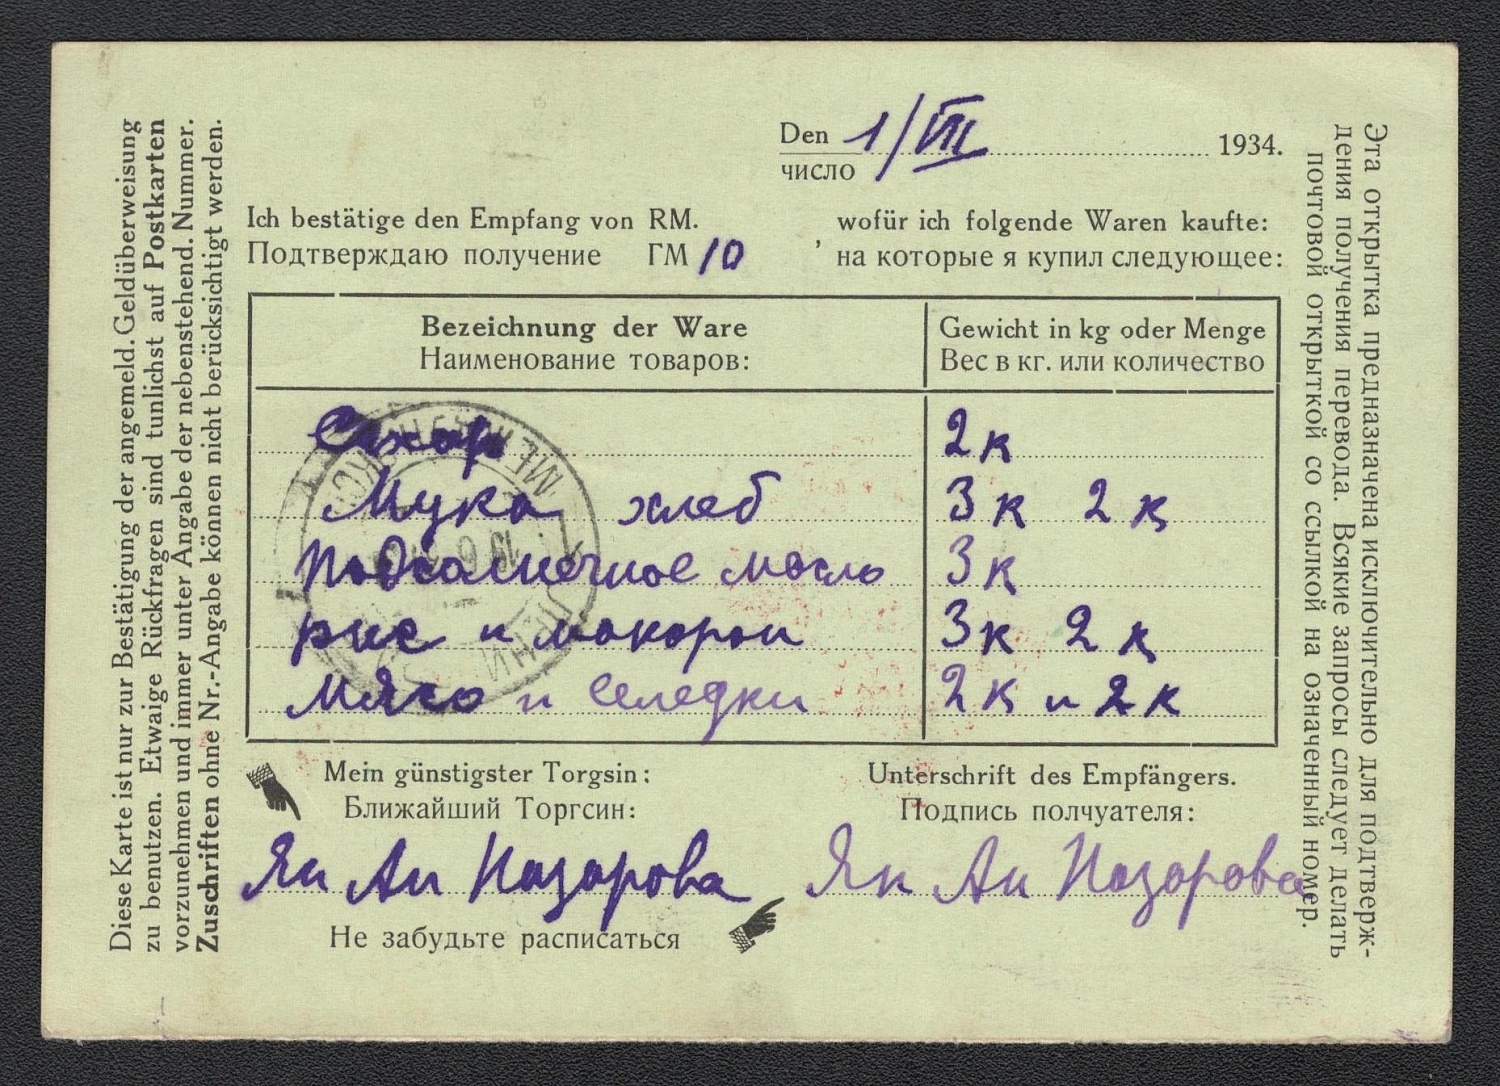 Den 1/VIII 1934.
число
Ich bestätige den Empfang von RM. wofür ich folgende Waren kaufte:
Подтверждаю получение ГМ 10 , на которые я купил следующее:
Bezeichnung der Ware Gewicht in kg oder Menge
Наименование товаров: Вес в кг. или количество
Сахар 2 к
Мука хлеб 3 к 2 к
Подсолнечное масло 3 к
рис и макорои 3 к 2 к
Мясо и селедки 2 к и 2 к
Mein günstigster Torgsin: Unterschrift des Empfängers.
Ближайший Торгсин: Подпись полчуателя:
Ян Ан Назарова Ян Ан Назарова
Не забудьте расписаться
Diese Karte ist nur zur Bestätigung der angemeld. Geldüberweisung
zu benutzen. Etwaige Rückfragen sind tunlichst auf Postkarten
vorzunehmen und immer unter Angabe der nebenstehend. Nummer.
Zuschriften ohne Nr.-Angabe können nicht berücksichtigt werden.
Эта открытка предназначена исключительно для подтверж-
дения получения перевода. Всякие запросы следует делать
почтовой открыткой со ссылкой на означенный номер.